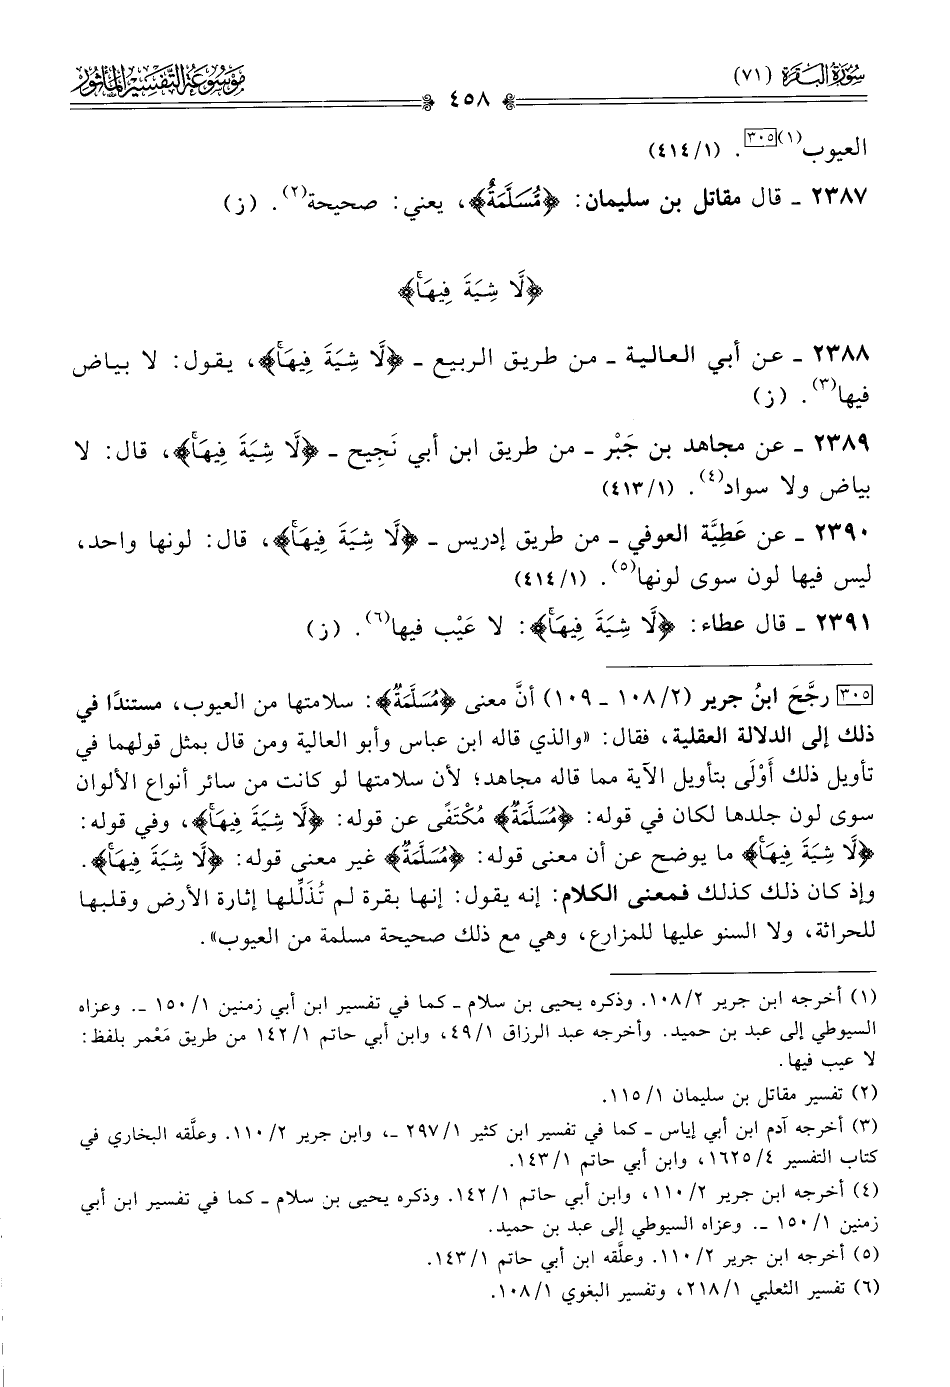 سُورَةُ البَقَرَة (٧١)
٤٥٨
مَوْسُوعَةُ التَّفْسِيرِ المَأْثُور
العيوب(١)[٣٠٥]. (٤١٤/١)
٢٣٨٧ ـ قال مقاتل بن سليمان: ﴿مُسَلَّمَةٌ﴾، يعني: صحيحة(٢). (ز)
﴿لَّا شِيَةَ فِيهَاۚ﴾
٢٣٨٨ ـ عن أبي العالية ـ من طريق الربيع ـ ﴿لَّا شِيَةَ فِيهَاۚ﴾، يقول: لا بياض
فيها(٣). (ز)
٢٣٨٩ ـ عن مجاهد بن جَبْر ـ من طريق ابن أبي نَجِيح ـ ﴿لَّا شِيَةَ فِيهَاۚ﴾، قال: لا
بياض ولا سواد(٤). (٤١٣/١)
٢٣٩٠ ـ عن عَطِيَّة العوفي ـ من طريق إدريس ـ ﴿لَّا شِيَةَ فِيهَاۚ﴾، قال: لونها واحد،
ليس فيها لون سوى لونها(٥). (٤١٤/١)
٢٣٩١ ـ قال عطاء: ﴿لَّا شِيَةَ فِيهَاۚ﴾: لا عَيْب فيها(٦). (ز)
[٣٠٥] رجَّحَ ابنُ جرير (١٠٨/٢ ـ ١٠٩) أنَّ معنى ﴿مُسَلَّمَةٌ﴾: سلامتها من العيوب، مستندًا في
ذلك إلى الدلالة العقلية، فقال: «والذي قاله ابن عباس وأبو العالية ومن قال بمثل قولهما في
تأويل ذلك أَوْلَى بتأويل الآية مما قاله مجاهد؛ لأن سلامتها لو كانت من سائر أنواع الألوان
سوى لون جلدها لكان في قوله: ﴿مُسَلَّمَةٌ﴾ مُكْتَفًى عن قوله: ﴿لَّا شِيَةَ فِيهَاۚ﴾، وفي قوله:
﴿لَّا شِيَةَ فِيهَاۚ﴾ ما يوضح عن أن معنى قوله: ﴿مُسَلَّمَةٌ﴾ غير معنى قوله: ﴿لَّا شِيَةَ فِيهَاۚ﴾.
وإذ كان ذلك كذلك فمعنى الكلام: إنه يقول: إنها بقرة لم تُذَلِّلها إثارة الأرض وقلبها
للحراثة، ولا السنو عليها للمزارع، وهي مع ذلك صحيحة مسلمة من العيوب».
(١) أخرجه ابن جرير ١٠٨/٢. وذكره يحيى بن سلام ـ كما في تفسير ابن أبي زمنين ١٥٠/١ ـ. وعزاه
السيوطي إلى عبد بن حميد. وأخرجه عبد الرزاق ٤٩/١، وابن أبي حاتم ١٤٢/١ من طريق مَعْمر بلفظ:
لا عيب فيها.
(٢) تفسير مقاتل بن سليمان ١١٥/١.
(٣) أخرجه آدم ابن أبي إياس ـ كما في تفسير ابن كثير ٢٩٧/١ ـ، وابن جرير ١١٠/٢. وعلَّقه البخاري في
كتاب التفسير ١٦٢٥/٤، وابن أبي حاتم ١٤٣/١.
(٤) أخرجه ابن جرير ١١٠/٢، وابن أبي حاتم ١٤٢/١. وذكره يحيى بن سلام ـ كما في تفسير ابن أبي
زمنين ١٥٠/١ ـ. وعزاه السيوطي إلى عبد بن حميد.
(٥) أخرجه ابن جرير ١١٠/٢. وعلَّقه ابن أبي حاتم ١٤٣/١.
(٦) تفسير الثعلبي ٢١٨/١، وتفسير البغوي ١٠٨/١.